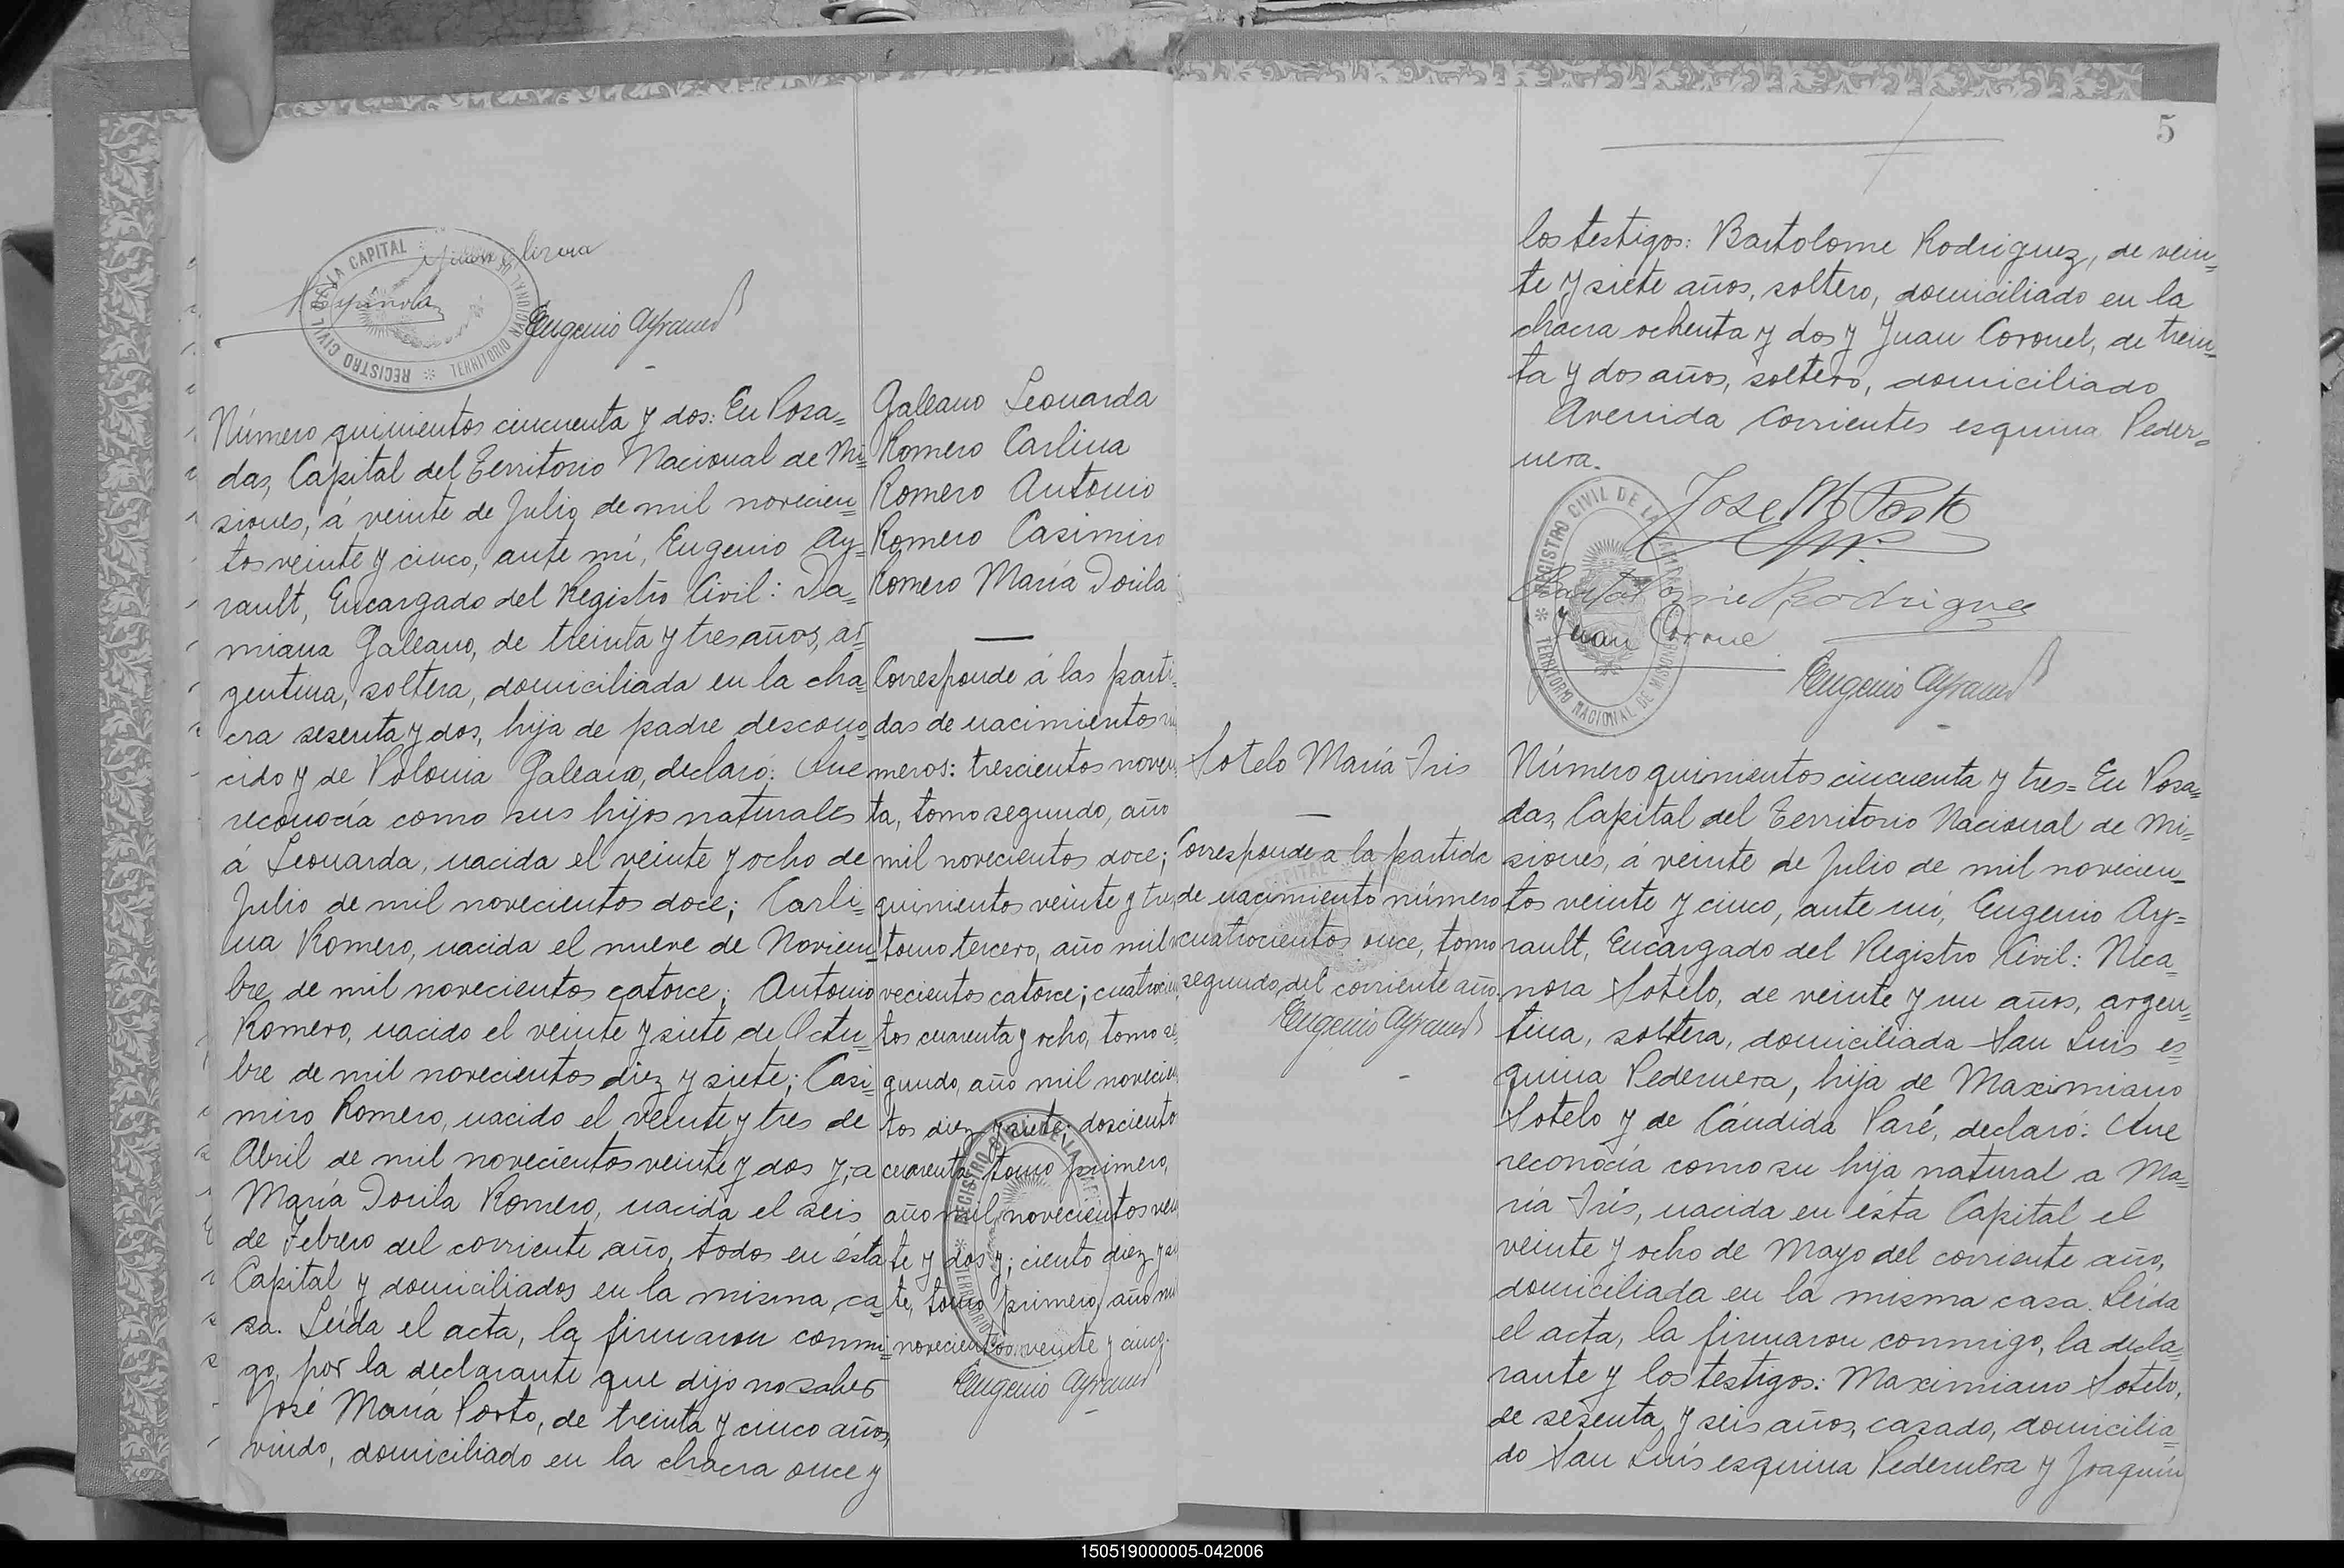 REGISTRO CIVIL DE LA CAPITAL * TERRITORIO NACIONAL DE
Eugenio Ayrault
Número quinientos cincuenta y dos: En Posa=
das, Capital del Territorio Nacional de Mi=
siones, á veinte de Julio de mil novecien=
tos veinte y cinco, ante mí, Eugenio Ay=
rault, Encargado del Registro Civil: Da=
miana Galeano, de treinta y tres años, ar=
gentina, soltera, domiciliada en la cha=
cra sesenta y dos, hija de padre descono=
cido y de Polonia Galeano, declaró: Que
reconocía como sus hijos naturales
á Leonarda, nacida el veinte y ocho de
Julio de mil novecientos doce; Carli=
na Romero, nacida el nueve de Noviem=
bre de mil novecientos catorce; Antonio
Romero, nacido el veinte y siete de Octu=
bre de mil novecientos diez y siete; Casi=
miro Romero, nacido el veinte y tres de
Abril de mil novecientos veinte y dos y, a
María Dorila Romero, nacida el seis
de Febrero del corriente año, todos en ésta
Capital y domiciliados en la misma ca=
sa. Leída el acta, la firmaron conmi=
go, por la declarante que dijo no saber
José María Porto, de treinta y cinco años,
viudo, domiciliado en la chacra once y
Galeano Leonarda
Romero Carlina
Romero Antonio
Romero Casimiro
Romero María Dorila
Corresponde á las parti
das de nacimientos nú
meros: trescientos noven
ta, tomo segundo, año
mil novecientos doce;
quinientos veinte y tres,
tomo tercero, año mil no
vecientos catorce; cuatrocien
tos cuarenta y ocho, tomo se
gundo, año mil novecien
tos diez y siete; doscientos
cuarenta tomo primero,
año mil novecientos vein
te y dos y; ciento diez y sie
te, tomo primero, año mil
novecientos veinte y cinco.
Eugenio Ayrault
5
los testigos: Bartolome Rodriguez, de vein=
te y siete años, soltero, domiciliado en la
chacra ochenta y dos y Juan Coronel, de trein=
ta y dos años, soltero, domiciliado
Avenida Corrientes esquina Peder=
nera.
Jose M Porto
REGISTRO CIVIL DE LA CAPITAL * TERRITORIO NACIONAL DE MISIONES
Bartolome Rodriguez
Juan Corone
Eugenio Ayrault
Sotelo María Iris
Corresponde a la partida
de nacimiento número
cuatrocientos once, tomo
segundo, del corriente año.
Eugenio Ayrault
Número quinientos cincuenta y tres= En Posa=
das, Capital del Territorio Nacional de Mi=
siones, á veinte de Julio de mil novecien=
tos veinte y cinco, ante mí, Eugenio Ay=
rault, Encargado del Registro Civil: Nica=
nora Sotelo, de veinte y un años, argen=
tina, soltera, domiciliada San Luis es=
quina Pedernera, hija de Maximiano
Sotelo y de Cándida Paré, declaró: Que
reconocía como su hija natural a Ma=
ría Iris, nacida en ésta Capital el
veinte y ocho de Mayo del corriente año,
domiciliada en la misma casa. Leída
el acta, la firmaron conmigo, la decla=
rante y los testigos: Maximiano Sotelo,
de sesenta y seis años, casado, domicilia=
do San Luis esquina Pedernera y Joaquín
150519000005-042006